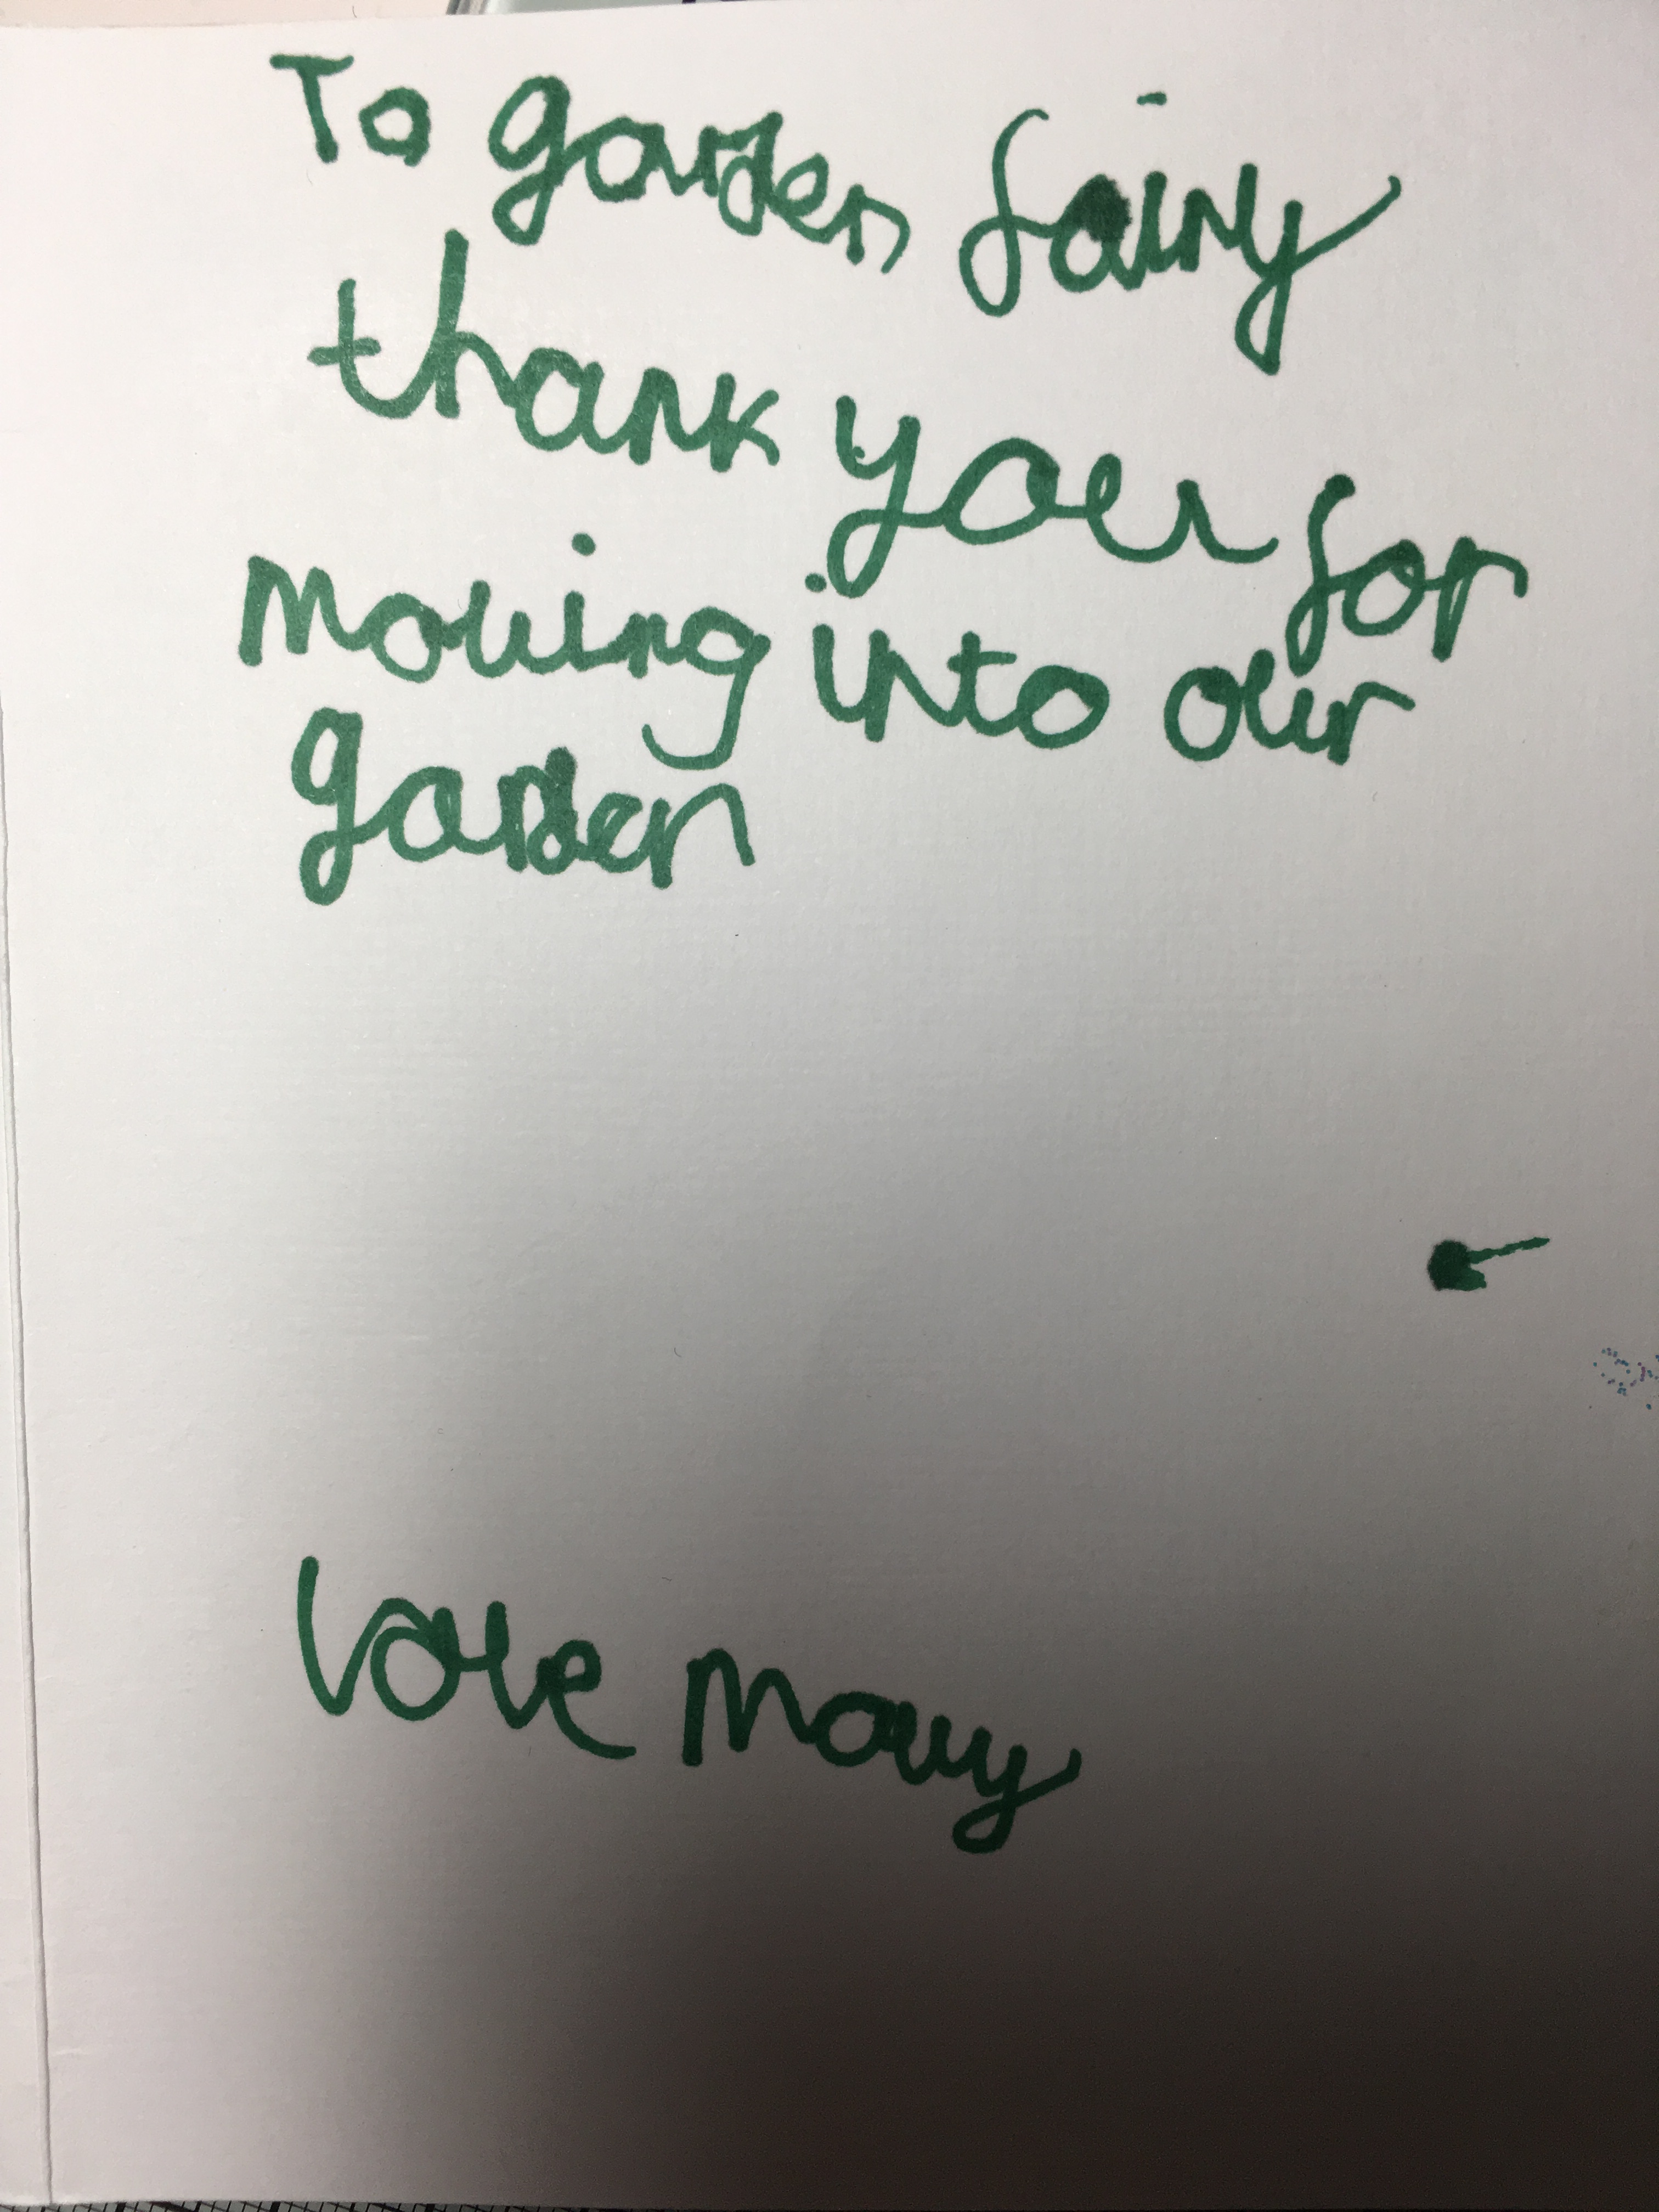 To garden fairy
thank you for
moving into our
garden
love Mary